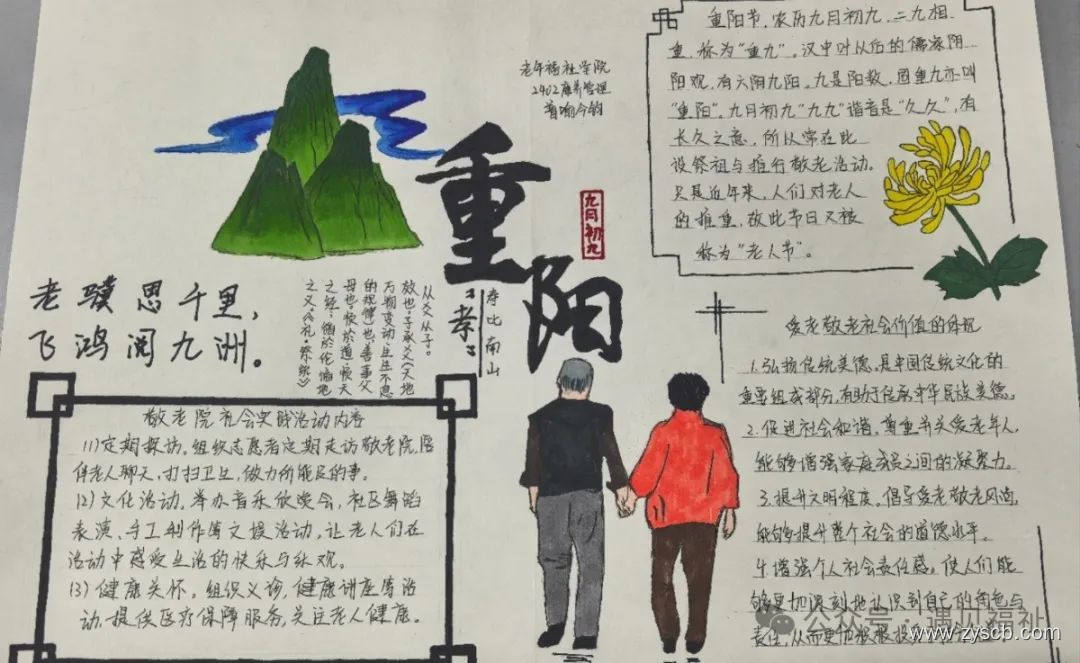 老年福祉学院
2402康养管理
重阳
九月初九
"孝"
寿比南山
从爻从子。
放也。子承爻(天地
的规律)也。善事父
之义。《礼·祭统》
老骥思千里，
飞鸿阅九洲。
重阳节，农历九月初九，二九相
重，称为"重九"。汉中叶以后的儒家阴
阳观，有六阴九阳。九是阳数，固重九亦叫
"重阳"。九月初九"九九"谐音是"久久"，有
长久之意，所以常在此
设祭祖与推行敬老活动。
只是近年来，人们对老人
的推重，故此节日又被
称为"老人节"。
敬老院社会实践活动内容
(1)定期探访。组织志愿者定期走访敬老院，陪
伴老人聊天，打扫卫生，做力所能及的事。
(2)文化活动。举办音乐欣赏会，社区舞蹈
表演、手工制作等文娱活动，让老人们在
活动中感受生活的快乐与乐观。
(3)健康关怀。组织义诊，健康讲座等活
动，提供医疗保障服务，关注老人健康。
爱老敬老社会价值的体现
1.弘扬传统美德，是中国传统文化的
重要组成部分，有助于传承中华民族美德。
2.促进社会和谐。尊重并关爱老年人，
能够增强家庭成员之间的凝聚力。
3.提升文明程度。倡导爱老敬老风尚，
能够提升整个社会的道德水平。
4.增强个人社会责任感。使人们能
够更加深刻地认识到自己的角色与
责任，从而更加积极投
公众号·遇见福祉
www.zyscb.com